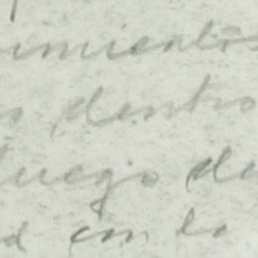 imientos
s dentro
luego de
d con lo